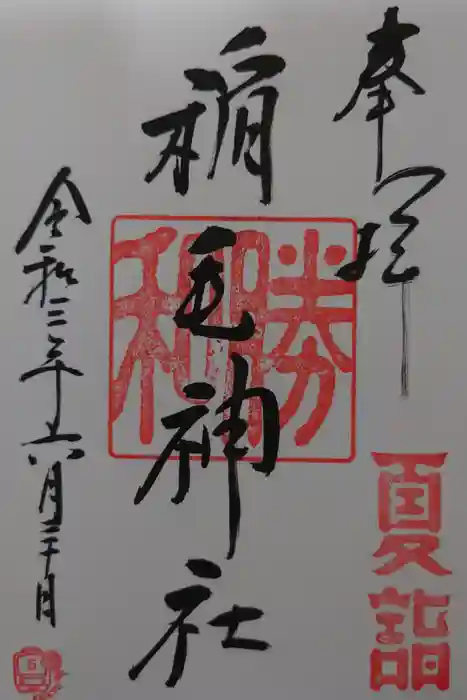 奉拝
夏詣
稲毛神社
勝和
令和三年六月日